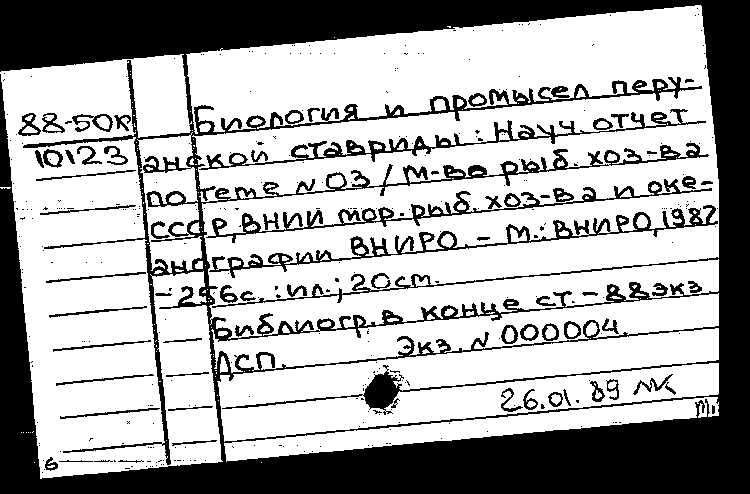 88-50к
10123
Биология и промысел перу-
анской ставриды: Науч. отчет
по теме N 03 / М-во рыб. хоз-ва
СССР, ВНИИ мор. рыб. хоз-ва и оке-
анографии ВНИРО. - М.: ВНИРО, 1987
- 256с. : ил.; 20см.
Библиогр. в конце ст. - 88 экз
ДСП. Экз. N 000004.
26.01.89
6